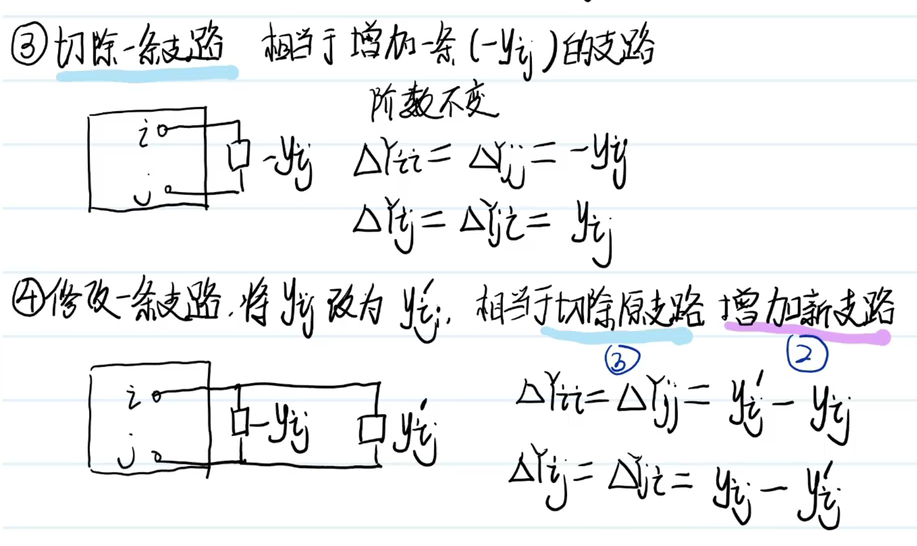 ③切除一条支路 相当于增加一条(-yij)的支路
阶数不变
i
-yij ΔYii = ΔYjj = -yij
j
ΔYij = ΔYji = yij
④修改一条支路，将yij改为y'ij，相当于切除原支路 增加新支路
③ ②
i
ΔYii = ΔYjj = y'ij - yij
-yij y'ij
j
ΔYij = ΔYji = yij - y'ij